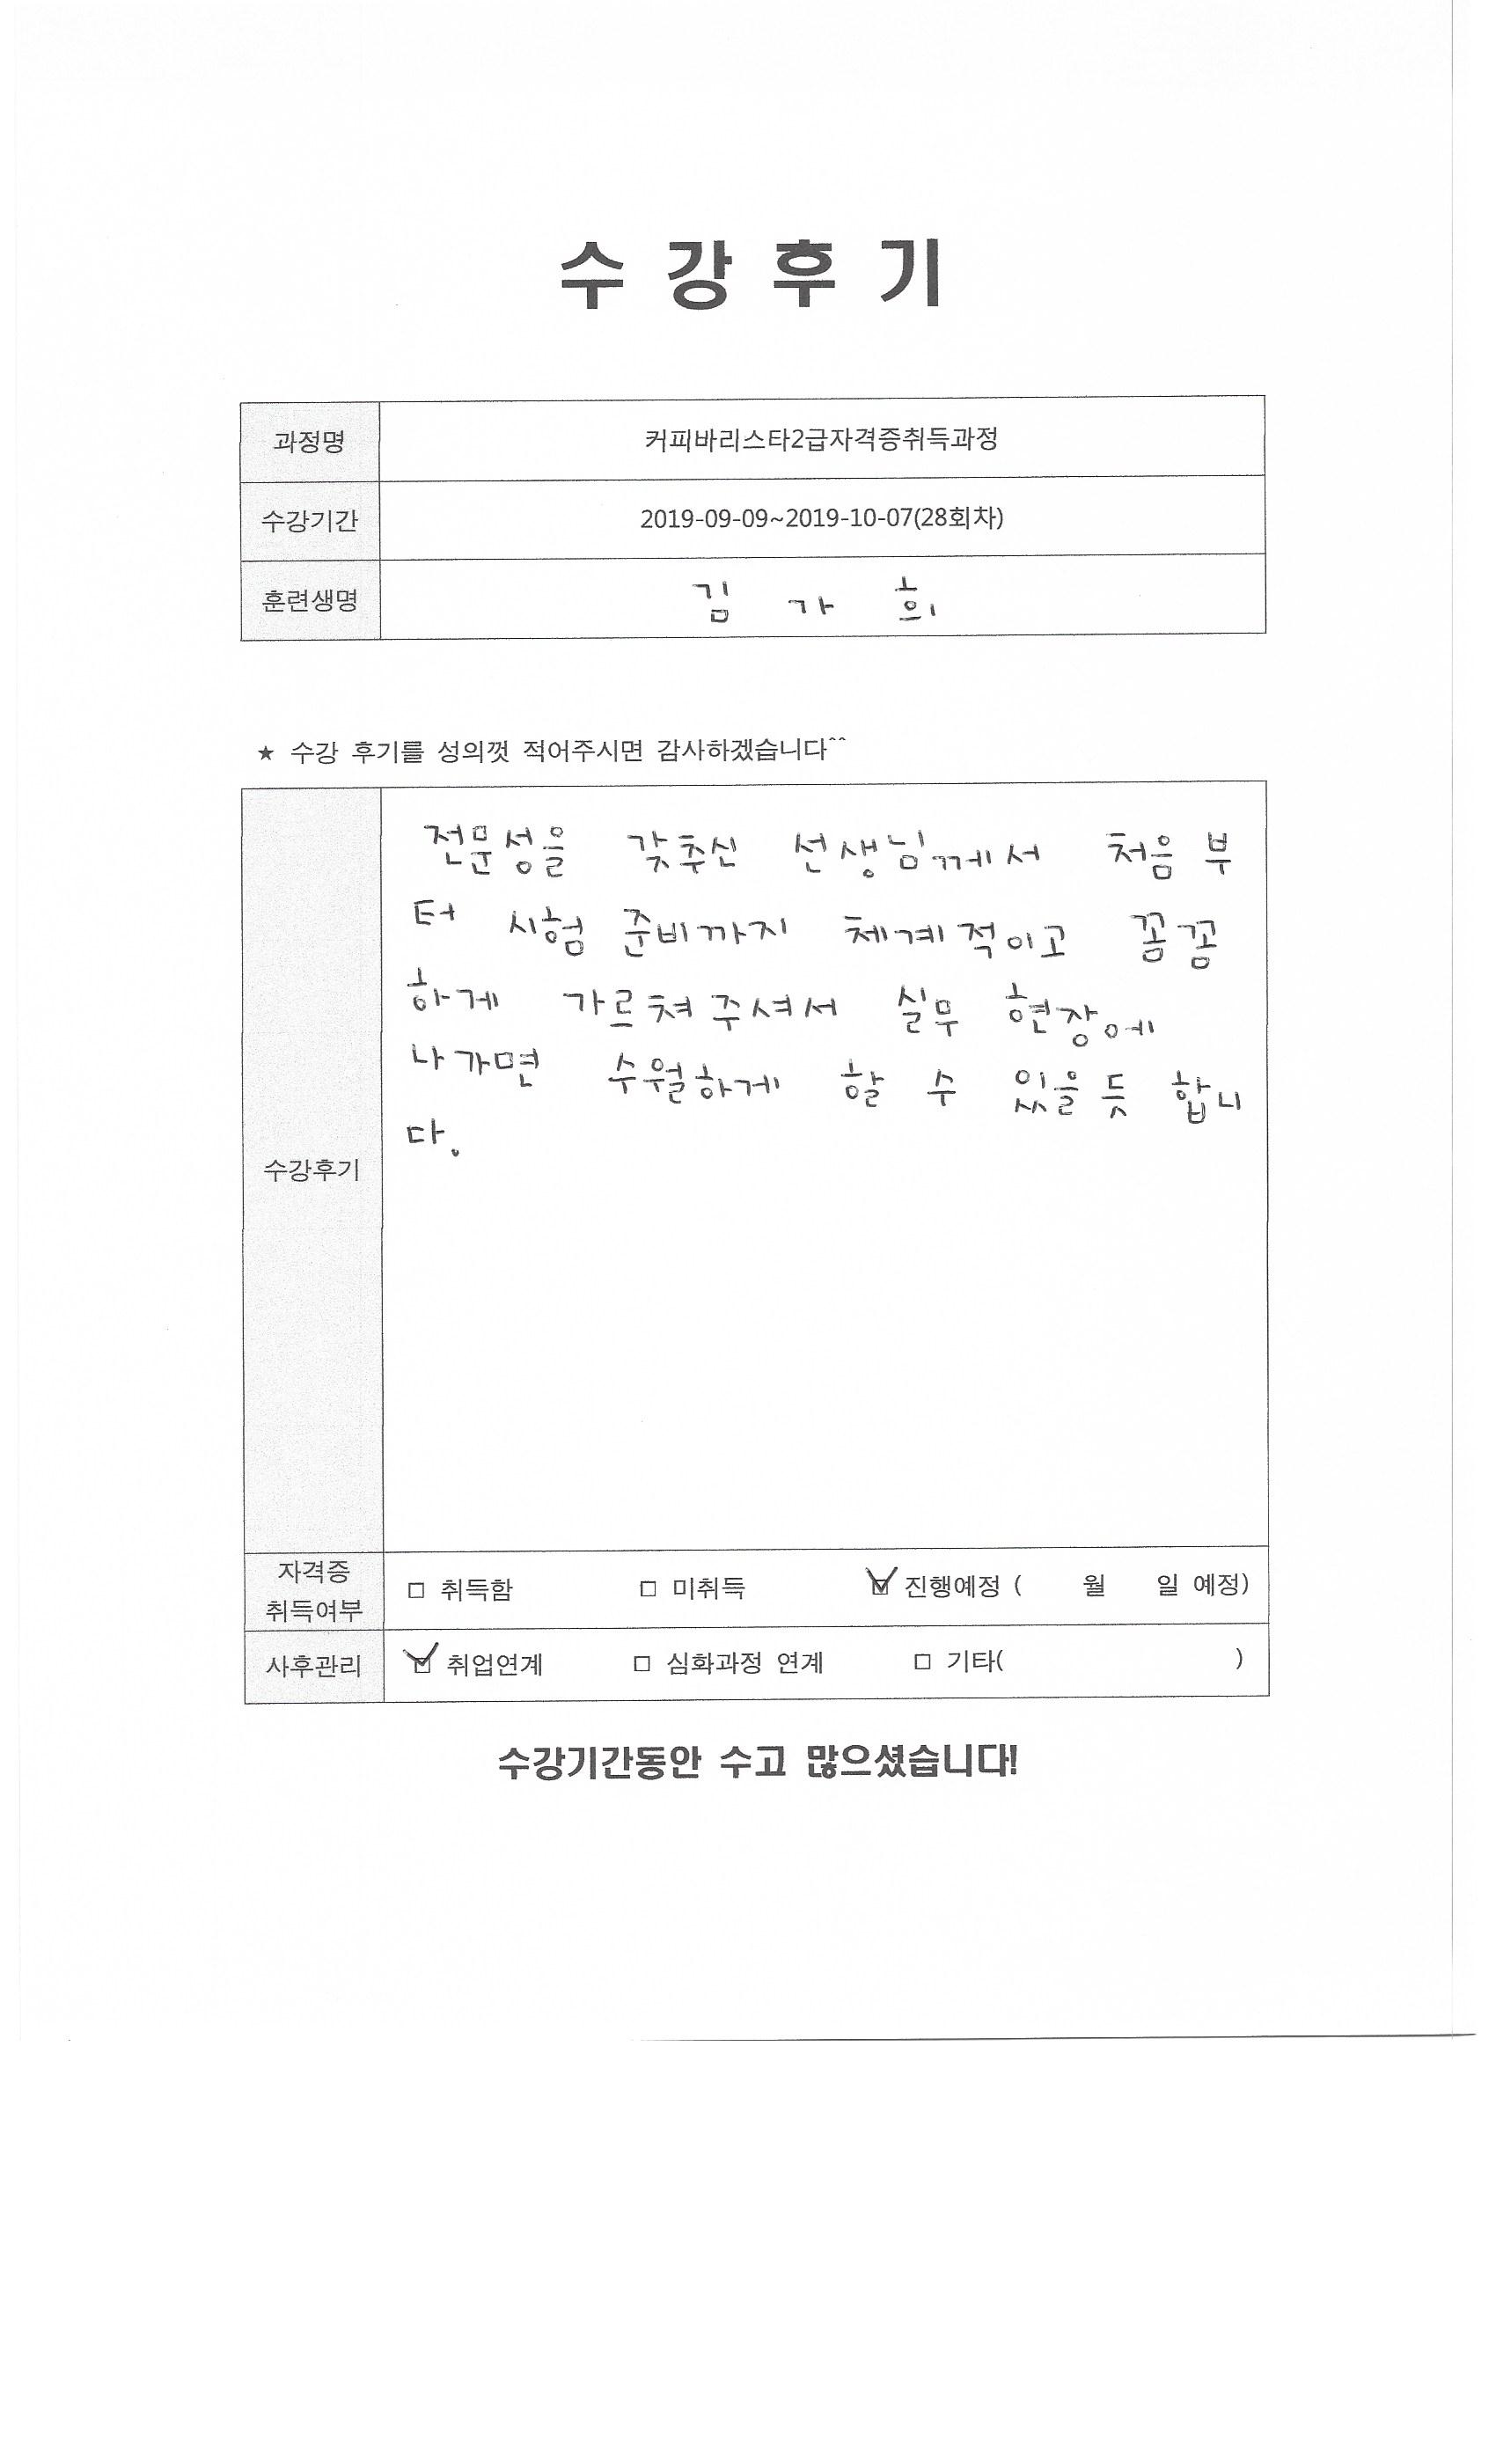 수 강 후 기
과정명 커피바리스타2급자격증취득과정
수강기간 2019-09-09~2019-10-07(28회차)
훈련생명 김 가 희
★ 수강 후기를 성의껏 적어주시면 감사하겠습니다^^
전문성을 갖추신 선생님께서 처음 부
터 시험 준비까지 체계적이고 꼼꼼
하게 가르쳐주셔서 실무 현장에
나가면 수월하게 할 수 있을 듯 합니
다.
수강후기
자격증
취득여부
□ 취득함 □ 미취득 ☑ 진행예정 ( 월 일 예정)
사후관리 ☑ 취업연계 □ 심화과정 연계 □ 기타( )
수강기간동안 수고 많으셨습니다!